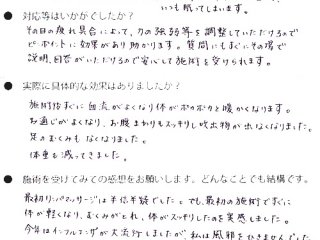 いつも眠ってしまいます。
● 対応等はいかがでしたか？
その日の疲れ具合によって、力の強弱等を調整していただけるので
ピーポイントに効果があり助かります。質問にもすぐその場で
説明、回答がいただけるので安心して施術を受けられます。
● 実際に具体的な効果はありましたか？
施術後すぐに血流がよくなり体がポカポカと暖かくなります。
お通じがよくなり、お腹まわりもスッキリし吹出物が出なくなりました。
足のむくみもなくなりました。
体重も減ってきました。
● 施術を受けてみての感想をお願いします。どんなことでも結構です。
最初リンパマッサージは半信半疑でした。でも、最初の施術ですぐに
体が軽くなり、むくみがとれ、体がスッキリしたのを実感しました。
今年はインフルエンザが大流行しましたが私は風邪をひきませんでした